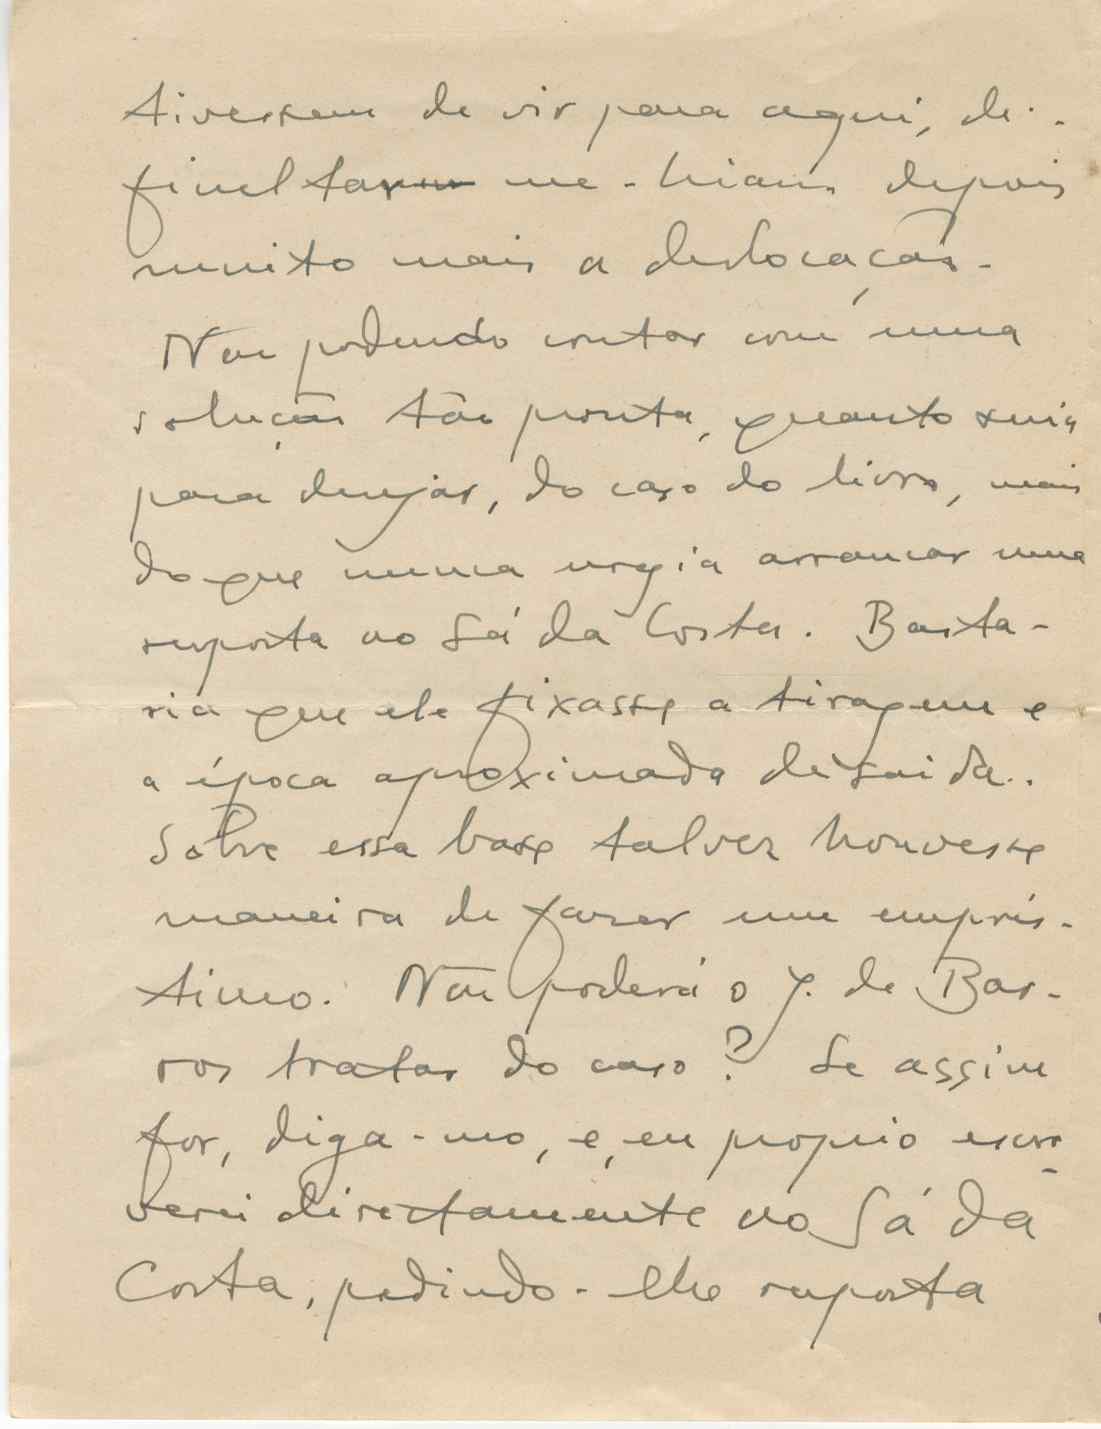 tivessem de vir para aqui, di-
ficultar me-hiam depois
muito mais a deslocação.
Não podendo contar com uma
solução tão pronta, quanto seria
para desejar, do caso do livro, mais
do que nunca urgia arrancar uma
resposta ao Sá da Costa. Basta-
ria que ele fixasse a tiragem e
a época aproximada de saida..
Sobre essa base talvez houvesse
maneira de fazer um emprés-
timo. Não poderá o J. de Bar-
ros tratar do caso? Se assim
for, diga-mo, e, eu proprio escre-
verei directamente ao Sá da
Costa, pedindo-lhe resposta